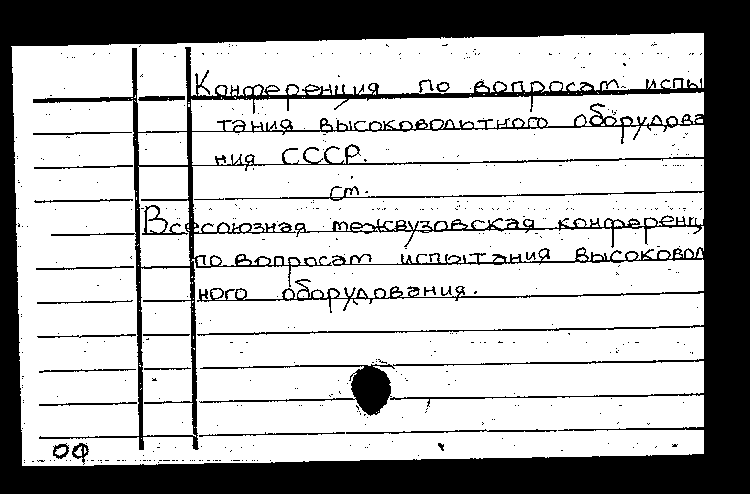 Конференция по вопросам испы
тания высоковольтного оборудова
ния СССР.
см.
Всесоюзная межвузовская конференц
по вопросам испытания высоковол
ного оборудования.
ОФ